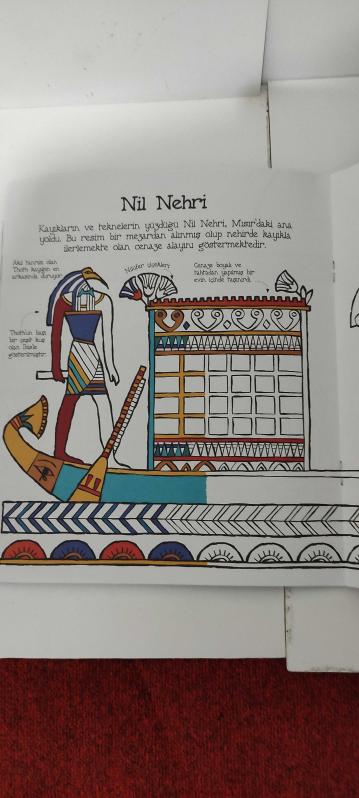 Nil Nehri
Kayıkların ve teknelerin yüzdüğü Nil Nehri, Mısır'daki ana
yoldu. Bu resim bir mezardan alınmış olup nehirde kayıkla
ilerlemekte olan cenaze alayını göstermektedir.
Akıl tanrısı olan
Thoth kayığın en
arkasında duruyor.
Nilüfer çiçekleri
Cenaze boyalı ve
tahtadan yapılmış bir
evin içinde taşınırdı.
Thoth'un başı
bir çeşit kuş
olan İbisle
gösterilmiştir.